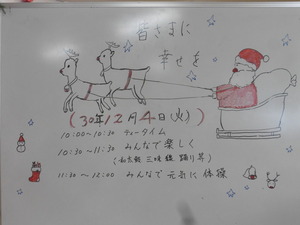 皆さまに
幸せを
(30年12月4日(火))
10:00~10:30 チュータイム
10:30~11:30 みんなで楽しく
(和太鼓 三味線 踊り等)
11:30~12:00 みんなで元気に体操